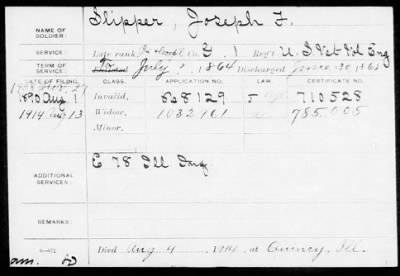 NAME OF SOLDIER: Slipper, Joseph F.
SERVICE: Late rank, Co. 1 Reg't U.S. Vet Vol Eng
TERM OF SERVICE: Enlisted July 1864 Discharged June 30 1865
DATE OF FILING. CLASS. APPLICATION NO. LAW. CERTIFICATE NO.
1890 Aug 1 Invalid, 828129 710528
1914 Aug 13 Widow, 1032961 785,005
Minor,
ADDITIONAL SERVICES: E 78 Ill Inf
REMARKS:
Died Aug 4 1914, at Quincy, Ill.